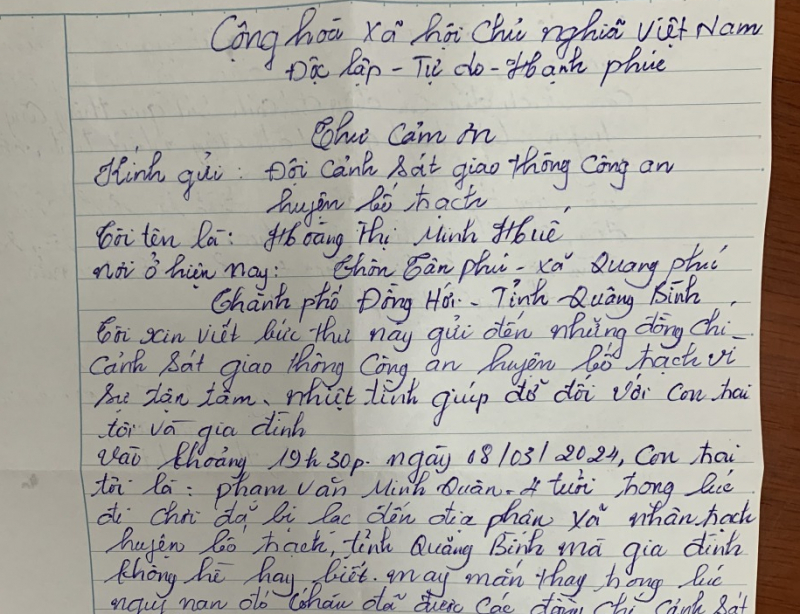 Cộng hoà xã hội chủ nghĩa Việt Nam
Độc lập - Tự do - Hạnh phúc
Thư cảm ơn
Kính gửi: Đội cảnh sát giao thông công an
huyện bố trạch
Tôi tên là: Hoàng Thị Minh Huế
nơi ở hiện nay: Thôn Tân phú - xã Quang phú
Thành phố Đồng Hới - Tỉnh Quảng Bình
Tôi xin viết bức thư này gửi đến những đồng chí
cảnh sát giao thông công an huyện bố trạch vì
sự tận tâm, nhiệt tình giúp đỡ đối với con trai
tôi và gia đình
vào khoảng 19h 30p. ngày 08/03/2024, con trai
tôi là: phạm văn Minh Quân - 4 tuổi trong lúc
đi chơi đã bị lạc đến địa phận xã nhân trạch
huyện bố trạch, tỉnh Quảng Bình mà gia đình
không hề hay biết. may mắn thay trong lúc
nguy nan đó cháu đã được các đồng chí cảnh sát